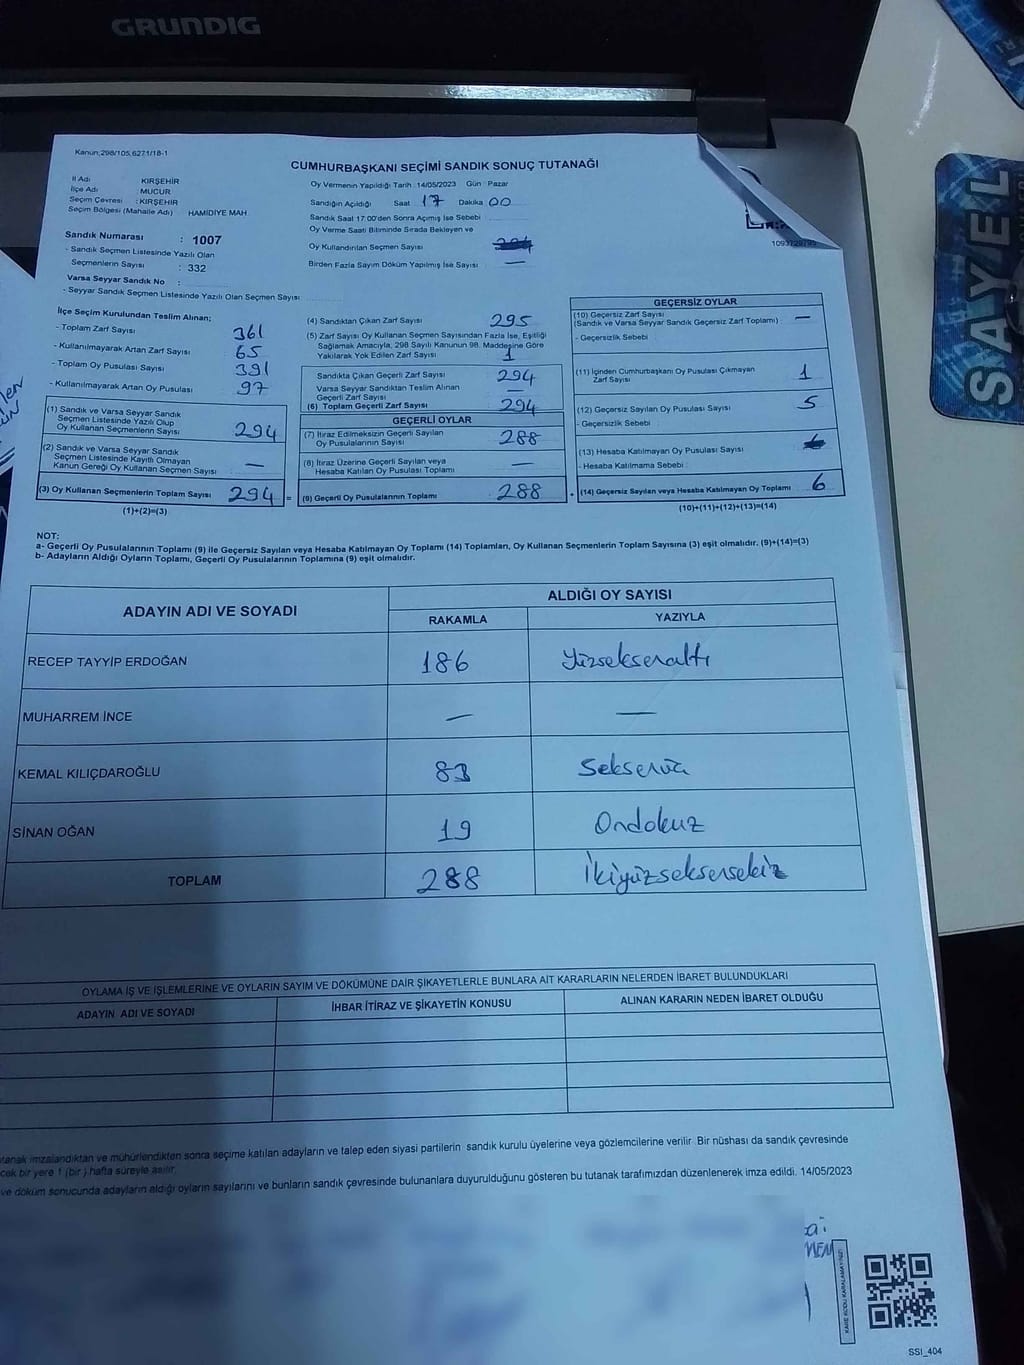 GRUNDIG
SAYEL
Kanun;298/105,6271/18-1
CUMHURBAŞKANI SEÇİMİ SANDIK SONUÇ TUTANAĞI
İl Adı KIRŞEHİR
İlçe Adı : MUCUR
Seçim Çevresi : KIRŞEHİR
Seçim Bölgesi (Mahalle Adı) HAMİDİYE MAH.
Oy Vermenin Yapıldığı Tarih : 14/05/2023 Gün : Pazar
Sandığın Açıldığı Saat 17 Dakika 00
Sandık Saat 17:00'den Sonra Açımış İse Sebebi
Oy Verme Saati Bitiminde Sırada Bekleyen ve
Oy Kullandırılan Seçmen Sayısı
Birden Fazla Sayım Döküm Yapılmış İse Sayısı : —
Sandık Numarası : 1007
- Sandık Seçmen Listesinde Yazılı Olan
Seçmenlerin Sayısı : 332
Varsa Seyyar Sandık No :
- Seyyar Sandık Seçmen Listesinde Yazılı Olan Seçmen Sayısı
İlçe Seçim Kurulundan Teslim Alınan;
- Toplam Zarf Sayısı 361
- Kullanılmayarak Artan Zarf Sayısı 65
- Toplam Oy Pusulası Sayısı 391
- Kullanılmayarak Artan Oy Pusulası 97
(1) Sandık ve Varsa Seyyar Sandık
Seçmen Listesinde Yazılı Olup
Oy Kullanan Seçmenlerin Sayısı 294
(2) Sandık ve Varsa Seyyar Sandık
Seçmen Listesinde Kayıtlı Olmayan
Kanun Gereği Oy Kullanan Seçmen Sayısı —
(3) Oy Kullanan Seçmenlerin Toplam Sayısı 294 =
(1)+(2)=(3)
(4) Sandıktan Çıkan Zarf Sayısı 295
(5) Zarf Sayısı Oy Kullanan Seçmen Sayısından Fazla İse, Eşitliği
Sağlamak Amacıyla, 298 Sayılı Kanunun 98. Maddesine Göre
Yakılarak Yok Edilen Zarf Sayısı 1
Sandıkta Çıkan Geçerli Zarf Sayısı 294
Varsa Seyyar Sandıktan Teslim Alınan
Geçerli Zarf Sayısı —
(6) Toplam Geçerli Zarf Sayısı 294
GEÇERLİ OYLAR
(7) İtiraz Edilmeksizin Geçerli Sayılan
Oy Pusulalarının Sayısı 288
(8) İtiraz Üzerine Geçerli Sayılan veya
Hesaba Katılan Oy Pusulası Toplamı —
(9) Geçerli Oy Pusulalarının Toplamı 288
GEÇERSİZ OYLAR
(10) Geçersiz Zarf Sayısı
(Sandık ve Varsa Seyyar Sandık Geçersiz Zarf Toplamı) —
- Geçersizlik Sebebi :
(11) İçinden Cumhurbaşkanı Oy Pusulası Çıkmayan
Zarf Sayısı 1
(12) Geçersiz Sayılan Oy Pusulası Sayısı 5
- Geçersizlik Sebebi :
(13) Hesaba Katılmayan Oy Pusulası Sayısı
- Hesaba Katılmama Sebebi :
(14) Geçersiz Sayılan veya Hesaba Katılmayan Oy Toplamı 6
(10)+(11)+(12)+(13)=(14)
NOT:
a- Geçerli Oy Pusulalarının Toplamı (9) ile Geçersiz Sayılan veya Hesaba Katılmayan Oy Toplamı (14) Toplamları, Oy Kullanan Seçmenlerin Toplam Sayısına (3) eşit olmalıdır. (9)+(14)=(3)
b- Adayların Aldığı Oyların Toplamı, Geçerli Oy Pusulalarının Toplamına (9) eşit olmalıdır.
ADAYIN ADI VE SOYADI ALDIĞI OY SAYISI
RAKAMLA YAZIYLA
RECEP TAYYİP ERDOĞAN 186 Yüzseksenaltı
MUHARREM İNCE — —
KEMAL KILIÇDAROĞLU 83 Seksenüç
SİNAN OĞAN 19 Ondokuz
TOPLAM 288 İkiyüzseksensekiz
OYLAMA İŞ VE İŞLEMLERİNE VE OYLARIN SAYIM VE DÖKÜMÜNE DAİR ŞİKAYETLERLE BUNLARA AİT KARARLARIN NELERDEN İBARET BULUNDUKLARI
ADAYIN ADI VE SOYADI İHBAR İTİRAZ VE ŞİKAYETİN KONUSU ALINAN KARARIN NEDEN İBARET OLDUĞU
imzalandıktan ve mühürlendikten sonra seçime katılan adayların ve talep eden siyasi partilerin sandık kurulu üyelerine veya gözlemcilerine verilir. Bir nüshası da sandık çevresinde
bir yere 1 (bir) hafta süreyle asılır.
ve döküm sonucunda adayların aldığı oyların sayılarını ve bunların sandık çevresinde bulunanlara duyurulduğunu gösteren bu tutanak tarafımızdan düzenlenerek imza edildi. 14/05/2023
KARE KODU KARALAMAYINIZ!
SSI_404